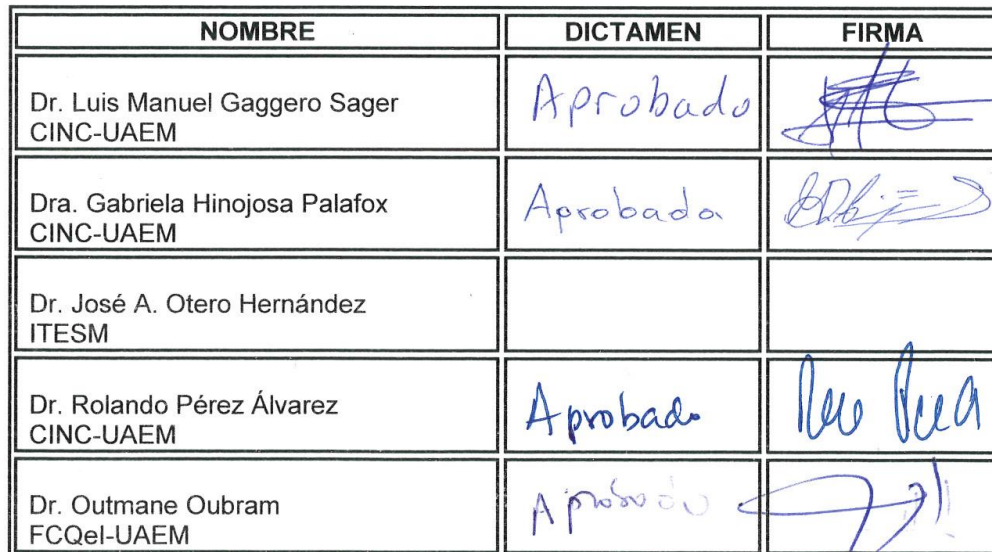 NOMBRE DICTAMEN FIRMA
Dr. Luis Manuel Gaggero Sager
CINC-UAEM
Aprobado
Dra. Gabriela Hinojosa Palafox
CINC-UAEM
Aprobada
Dr. José A. Otero Hernández
ITESM
Dr. Rolando Pérez Álvarez
CINC-UAEM
Aprobado
Dr. Outmane Oubram
FCQeI-UAEM
Aprobado